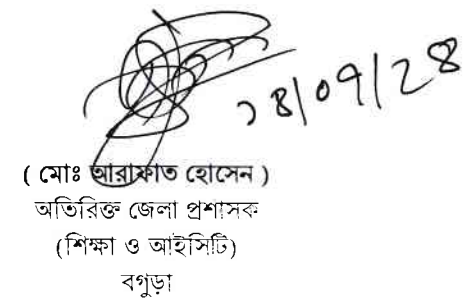 ১৪/০৭/২৪
( মোঃ আরাফাত হোসেন )
অতিরিক্ত জেলা প্রশাসক
(শিক্ষা ও আইসিটি)
বগুড়া